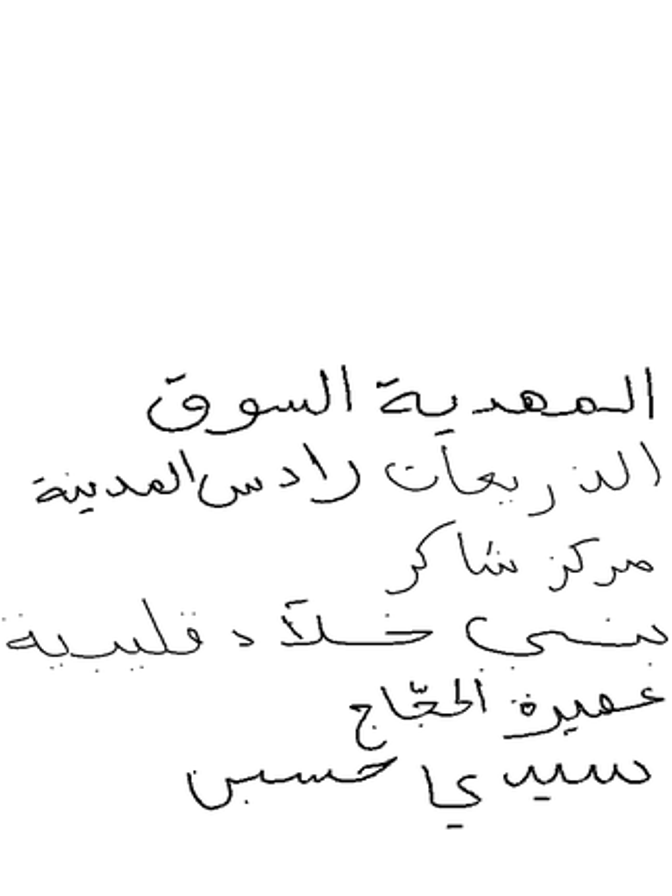 المهدية السوق
الذريعات رادس المدينة
مركز شاكر
بني خلاد قليبية
عميرة الحجّاج
سيدي حسين